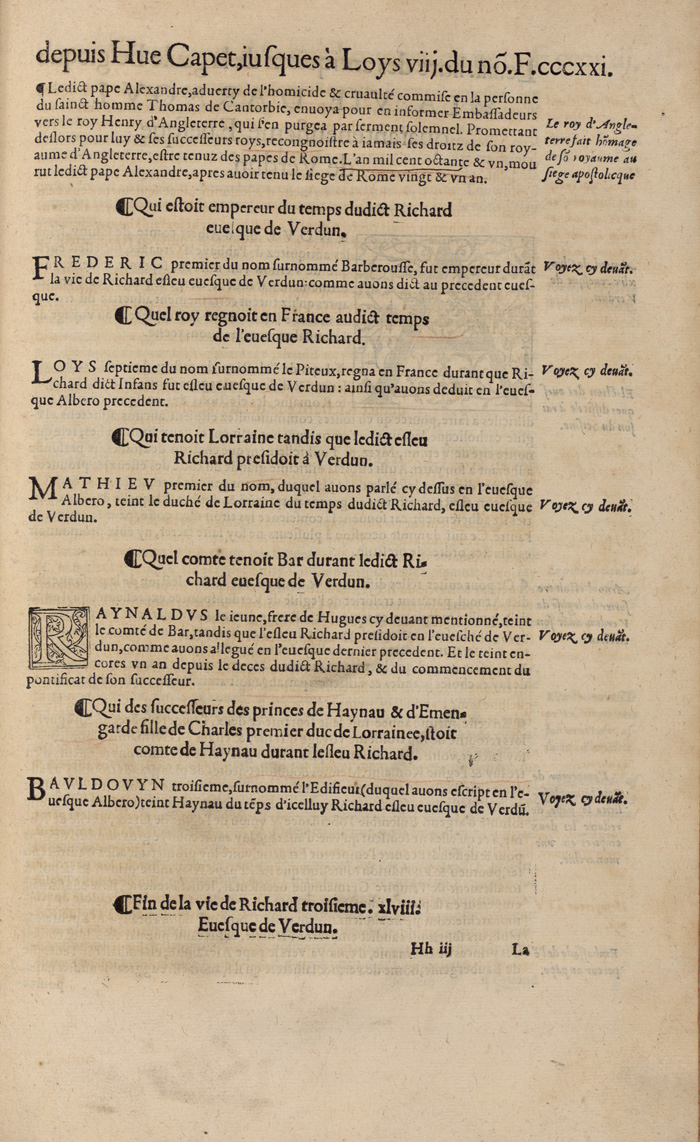 depuis Hue Capet,iuſques à Loys viij.du nõ.F.cccxxi.
¶Ledict pape Alexandre,aduerty de l'homicide & cruaulté commiſe en la perſonne
du ſainct homme Thomas de Cantorbie, enuoya pour en informer Embaſſadeurs
vers le roy Henry d'Angleterre, qui ſ'en purgea par ſerment ſolemnel. Promettant
deſlors pour luy & ſes ſucceſſeurs roys,recongnoiſtre à iamais ſes droitz de ſon roy-
aume d'Angleterre,eſtre tenuz des papes de Rome.L'an mil cent octante & vn,mou
rut ledict pape Alexandre,apres auoir tenu le ſiege de Rome vingt & vn an.
Le roy d'Angle-
terre fait hõmage
de ſõ royaume au
ſiege apoſtolicque
¶Qui eſtoit empereur du temps dudict Richard
eueſque de Verdun.
FREDERIC premier du nom ſurnommé Barberouſſe, fut empereur durãt
la vie de Richard eſleu eueſque de Verdun:comme auons dict au precedent eueſ-
que.
Voyez cy deuãt.
¶Quel roy regnoit en France audict temps
de l'eueſque Richard.
LOYS ſeptieme du nom ſurnommé le Piteux,regna en France durant que Ri-
chard dict Infans fut eſleu eueſque de Verdun : ainſi qu'auons deduit en l'eueſ-
que Albero precedent.
Voyez cy deuãt.
¶Qui tenoit Lorraine tandis que ledict eſleu
Richard preſidoit à Verdun.
MATHIEV premier du nom, duquel auons parlé cy deſſus en l'eueſque
Albero, teint le duché de Lorraine du temps dudict Richard, eſleu eueſque
de Verdun.
Voyez cy deuãt.
¶Quel comte tenoit Bar durant ledict Ri-
chard eueſque de Verdun.
RAYNALDVS le ieune,frere de Hugues cy deuant mentionné,teint
le comté de Bar,tandis que l'eſleu Richard preſidoit en l'eueſché de Ver-
dun,comme auons allegué en l'eueſque dernier precedent. Et le teint en-
cores vn an depuis le deces dudict Richard, & du commencement du
pontificat de ſon ſucceſſeur.
Voyez cy deuãt.
¶Qui des ſucceſſeurs des princes de Haynau & d'Emen-
garde fille de Charles premier duc de Lorrainee,ſtoit
comte de Haynau durant leſleu Richard.
BAVLDOVYN troiſieme,ſurnommé l'Edifieur(duquel auons eſcript en l'e-
ueſque Albero)teint Haynau du tẽps d'icelluy Richard eſleu eueſque de Verdũ.
Voyez cy deuãt.
¶Fin de la vie de Richard troiſieme. xlviii.
Eueſque de Verdun.
Hh iij La